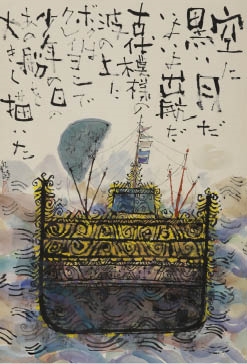 空に
黒い目だ
いよいよ出航だ
古代模様の
波の上に
ボクは
クレヨンで
少年の日
の船を
大きく描いた